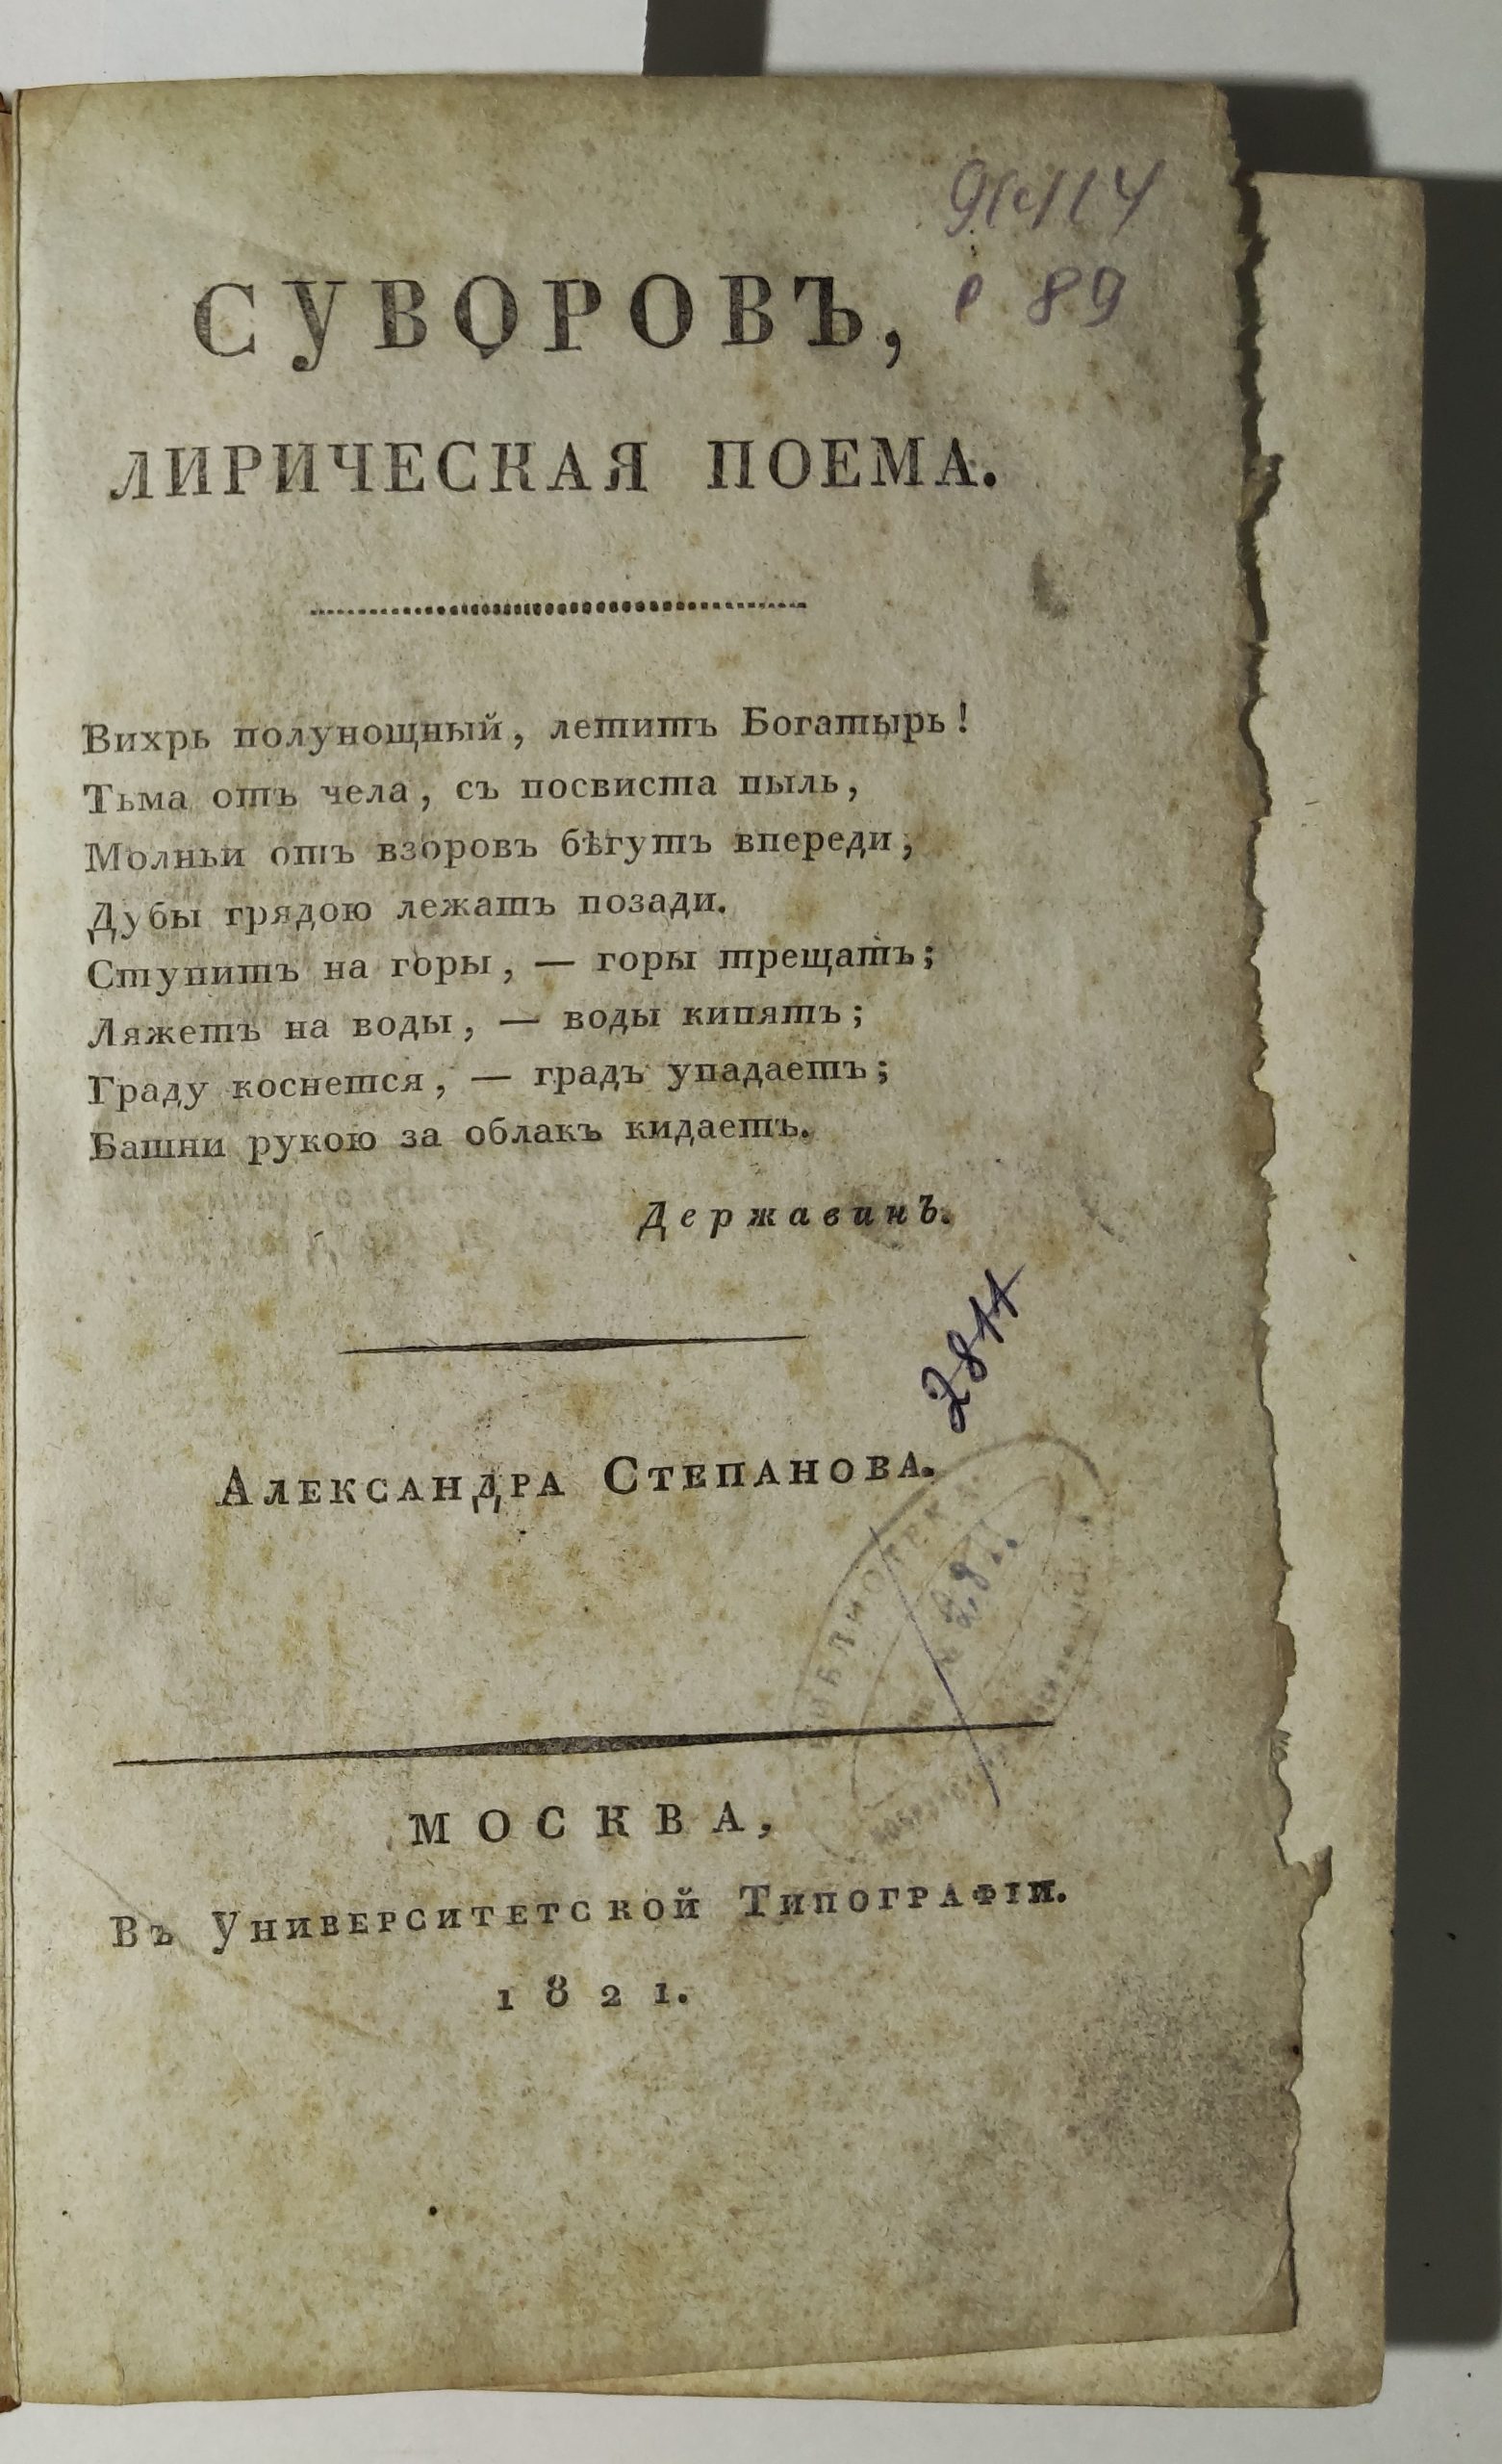 СУВОРОВЪ,
89
ЛИРИЧЕСКАЯ ПОЕМА.
Вихрь полунощный, летитъ Богатырь!
Тьма отъ чела, съ посвиста пыль,
Молньи отъ взоровъ бѣгутъ впереди,
Дубы грядою лежатъ позади.
Ступитъ на горы, — горы трещатъ;
Ляжетъ на воды, — воды кипятъ;
Граду коснется, — градъ упадаетъ;
Башни рукою за облакъ кидаетъ.
Державинъ.
АЛЕКСАНДРА СТЕПАНОВА.
МОСКВА,
ВЪ УНИВЕРСИТЕТСКОЙ ТИПОГРАФІИ.
1821.